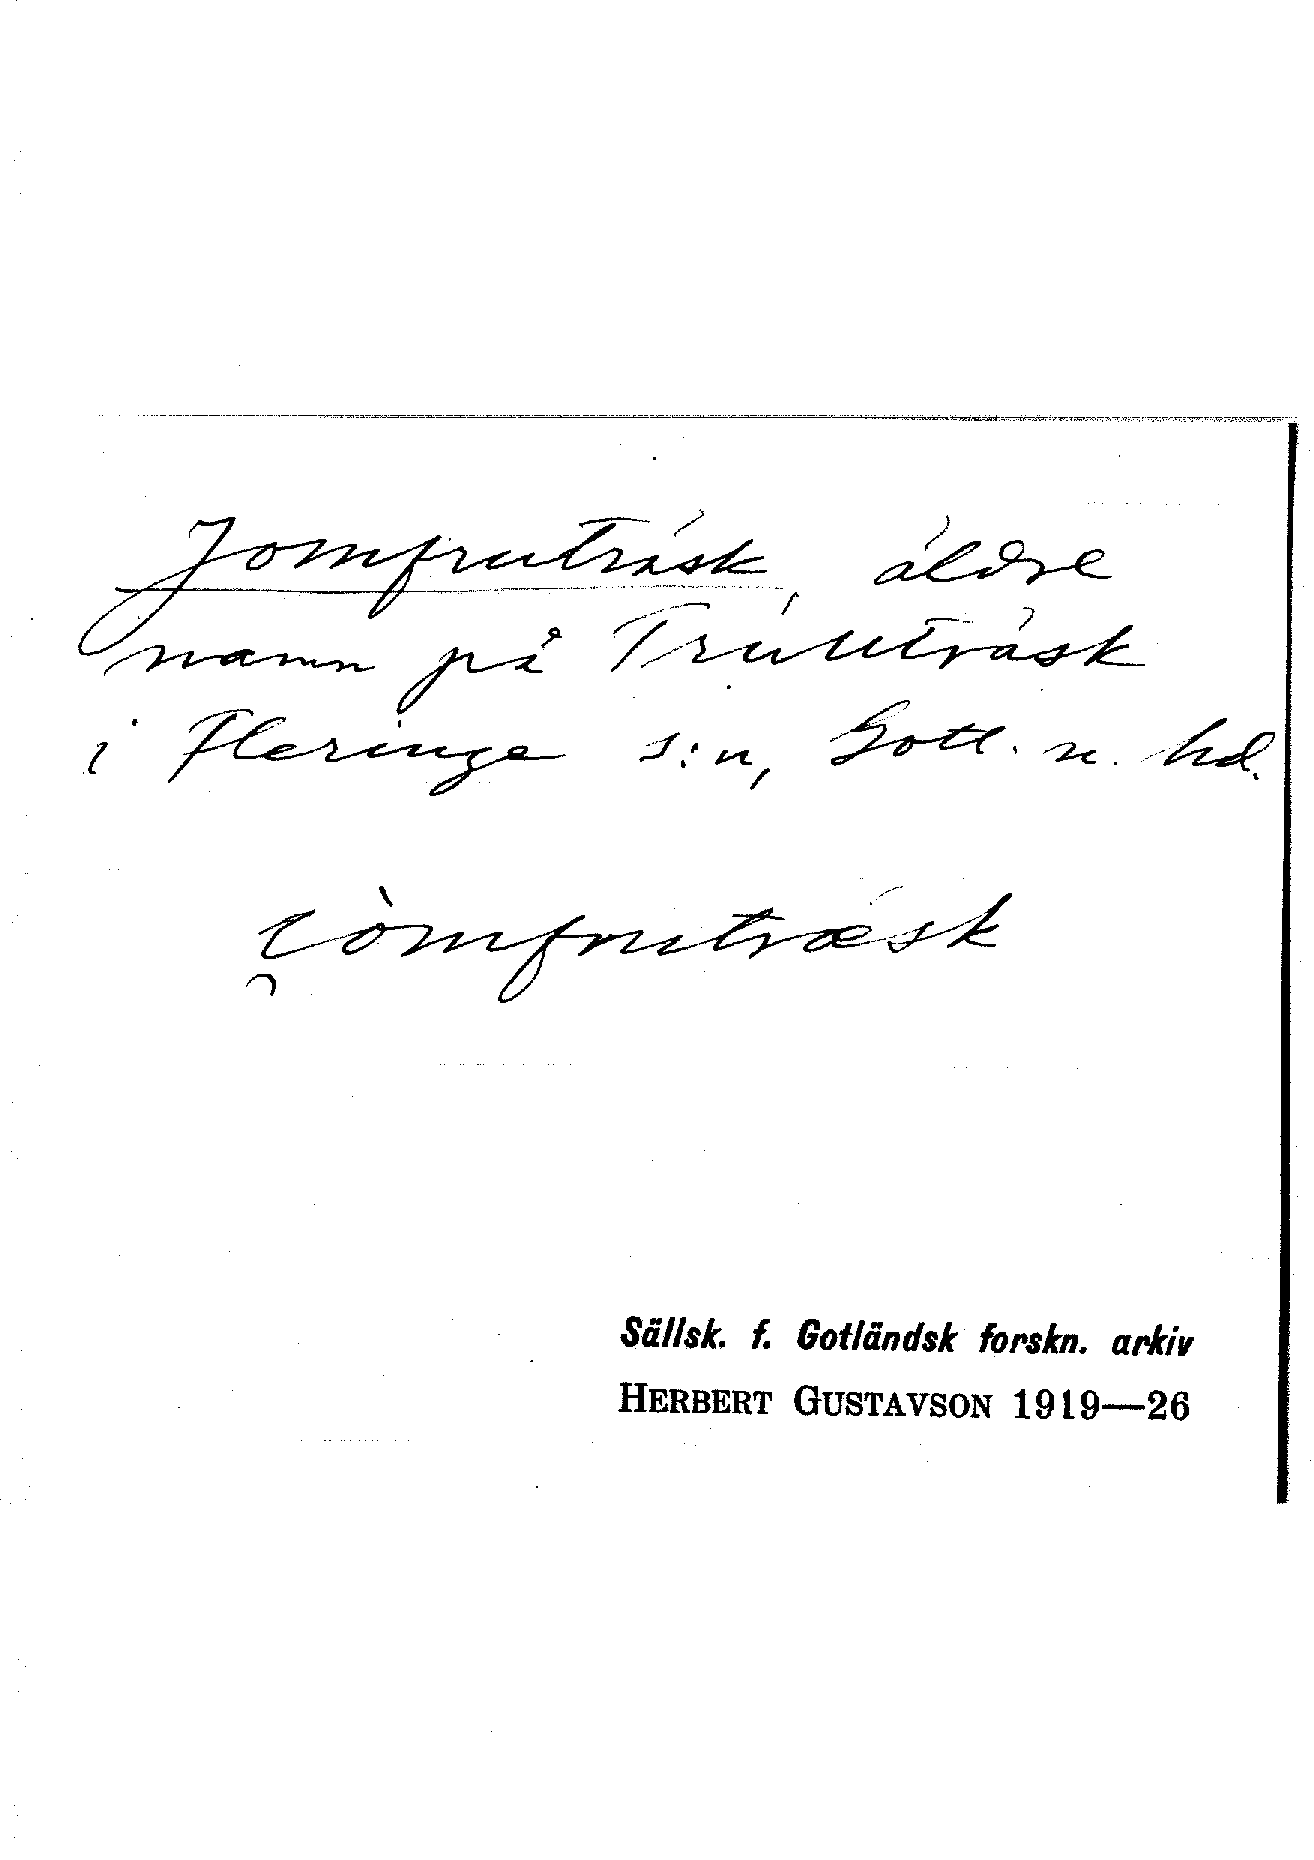 Jomfruträsk, äldre
namn på Trullträsk
i Fleringe s:n, Gotl. n. hd.
i̯òmfrutræsk
Sällsk. f. Gotländsk forskn. arkiv
HERBERT GUSTAVSON 1919—26